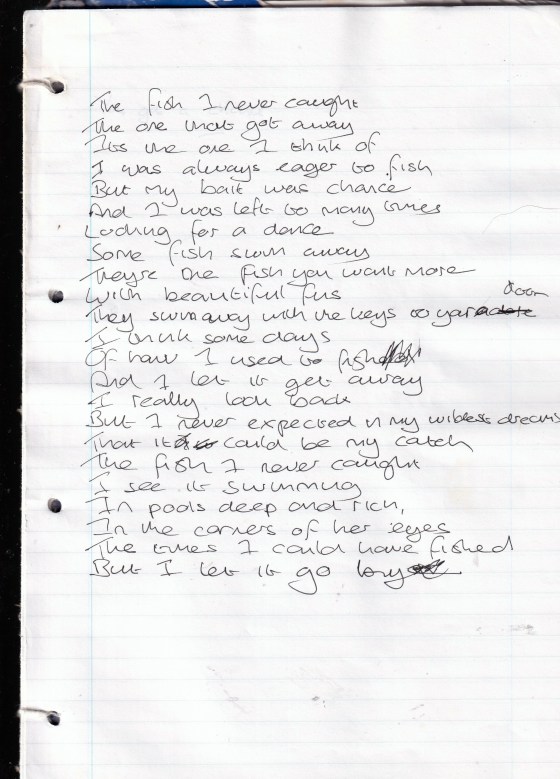 The fish I never caught
The one that got away
Its the one I think of
I was always eager to fish
But my bait was chance
And I was left to many times
Looking for a dance
Some fish swim away
They're the fish you want more
With beautiful fins
door
They swim away with the keys to your
I think some days
Of how I used to fish
And I let it get away
I really look back
But I never expected in my wildest dreams
That it could be my catch
The fish I never caught
I see it swimming
In pools deep and rich,
In the corners of her eyes
The times I could have fished
But I let it go by